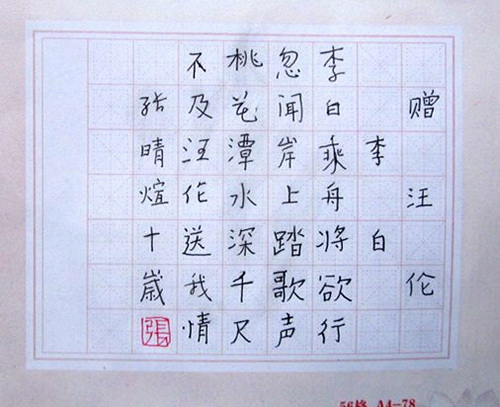 赠汪伦
李白
李白乘舟将欲行
忽闻岸上踏歌声
桃花潭水深千尺
不及汪伦送我情
张晴煊十歳
張
56格 A4-78